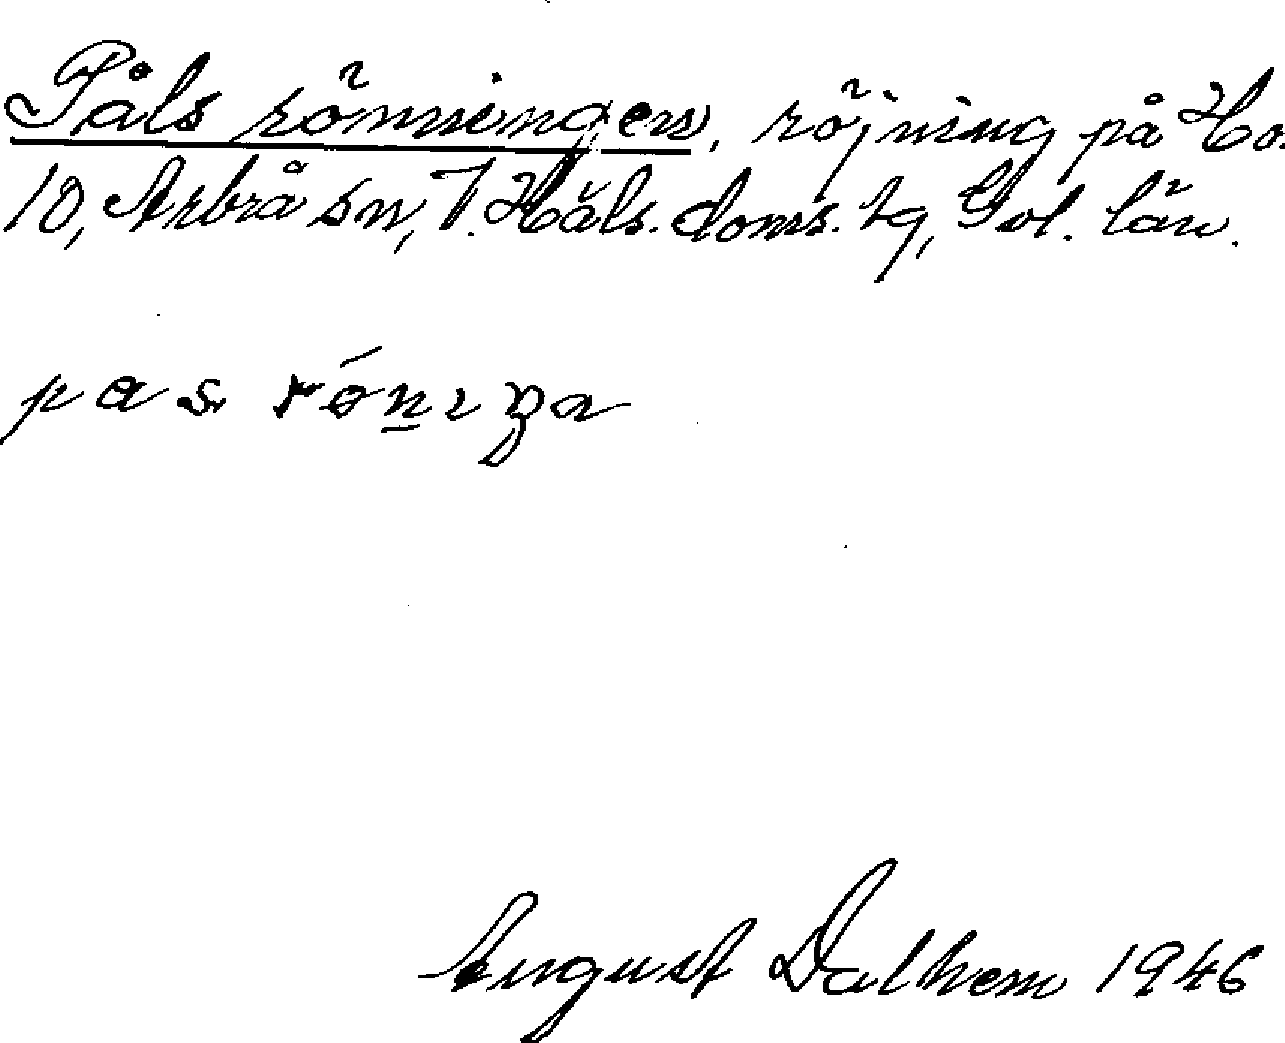 Påls rönningen, röjning på Ho.
10, Arbrå sn, V. Häls. doms. tg, Gvl. län.
pas rǿnıŋa
August Dalhem 1946